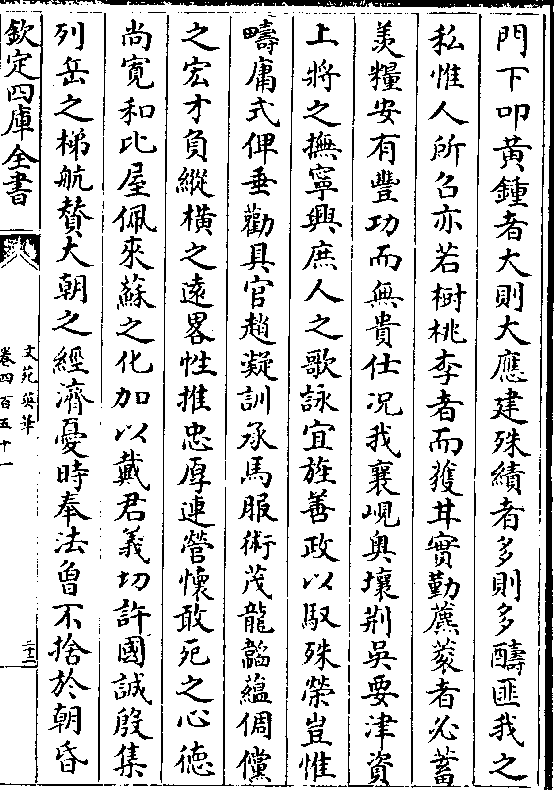 門下叩黃鍾者大則大應建殊績者多則多醻匪我之
私惟人所召亦若樹桃李者而獲甘實勤藨蔉者必蓄
羨糧安有豐功而無貴仕况我襄峴奥壤荆吳要津資
上將之撫寧興庶人之歌詠宜旌善政以馭殊榮豈惟
疇庸式俾垂勸具官趙凝訓承馬服術茂龍韜藴倜儻
之宏才負縱橫之遠畧性推忠厚連營懷敢死之心德
尚寛和比屋佩來蘇之化加以戴君義切許國誠殷集
列岳之梯航賛大朝之經濟憂時奉法曾不捨於朝昏
欽定四庫全書
文苑英華
卷四百五十一
二十二